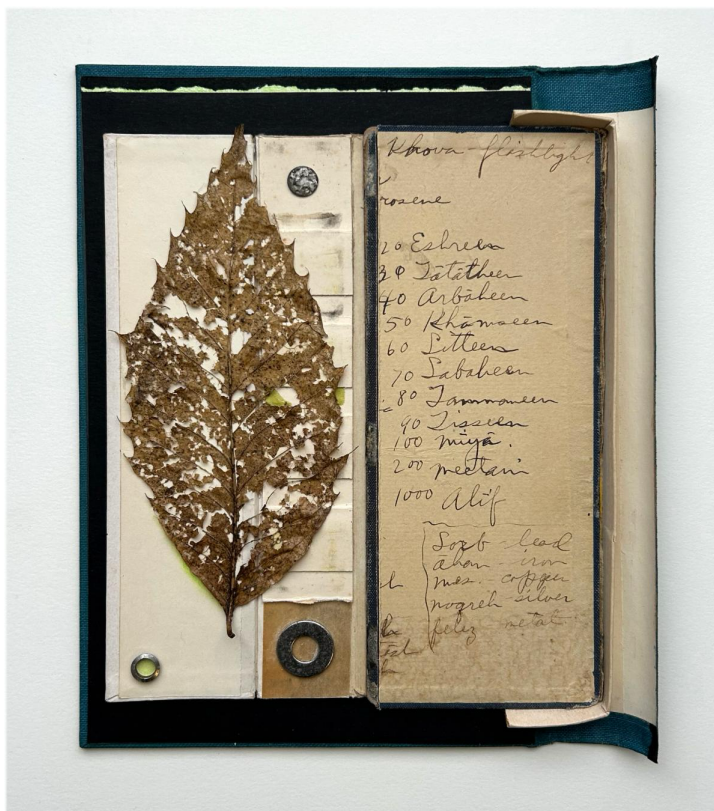 Khova flashlight
rosene
20 Eshreen
30 Tatatheen
40 Arbaheen
50 Khamseen
60 Sitteen
70 Sabaheen
80 Tammaneen
90 Tisseen
100 miya.
200 meetain
1000 Alif
Sorb - lead
ahan - iron
mes. - copper
nogreh silver
felez metal